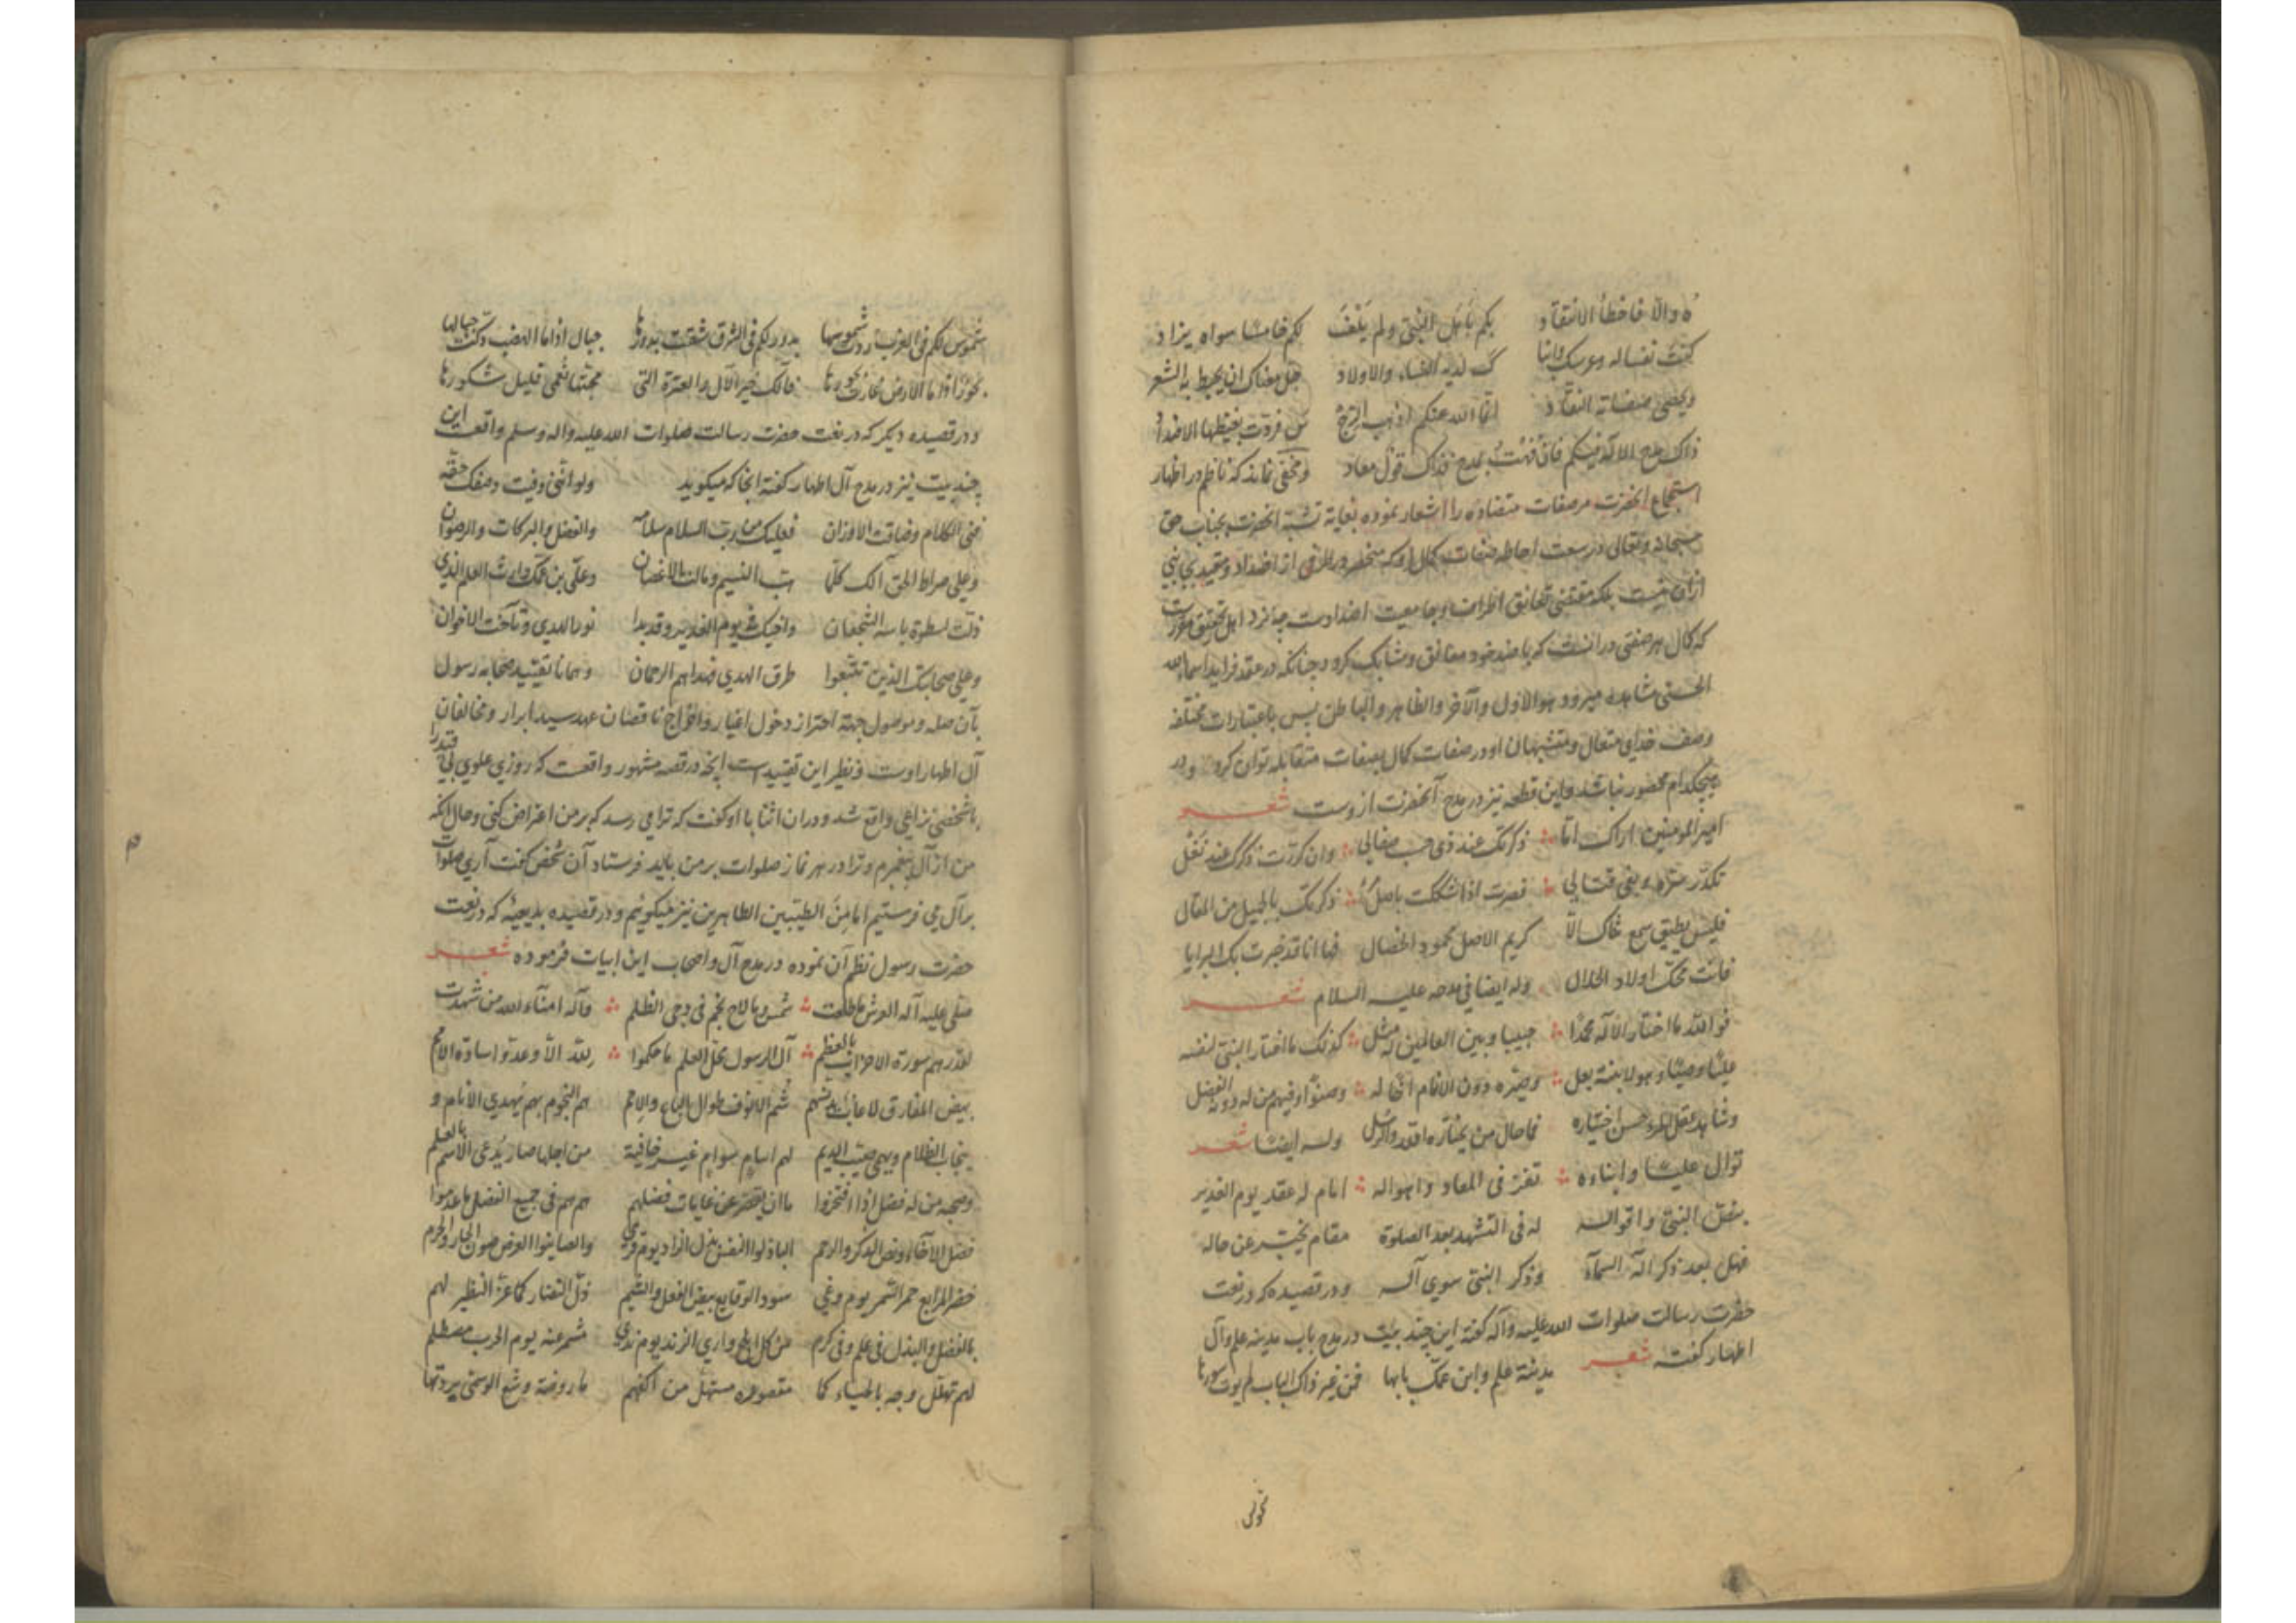 ه والّا فاخطأ الانتقاد بكم باهل النبي ولم يلف لكم خامسًا سواه يزاد
كنت نفسا له وعرسك وابنا ك لديه النساء والاولاد جل معناك ان يحيط به الشعر
ويحصى صفاته النقاد انما الله عنكم اذهب الرجس فردت بغيظها الاضداد
ذاك مدح الاله فيكم فان فهت بمدح فذاك قول معاد ومخفى نماند كه ناظم در اظهار
استجماع انحضرت مر صفات متضاده را اشعار نموده بغاية تشبه انحضرت بجناب حق
سبحانه وتعالى در سعت احاطه صفات كمال او كه منحصر در از اضداد و مقيد بجانبى
ازان نيست بلكه مقتضى تعانق اطراف و جامعيت اضدادست چه نزد اهل تحقيق مقررست
كه كمال هر صفتى در انست كه با ضد خود معانق و متشابك گردد چنانكه در عقد فرايد اسماء الله
الحسنى مشاهده ميرود هو الاول والآخر والظاهر والباطن پس باعتبارات مختلفه
وصف خداى متعال و متشبهان او در صفات كمال بصفات متقابله توان كرد و در
هيچكدام محصور نباشد و اين قطعه نيز در مدح آنحضرت از وست شعر
امير المؤمنين اراك امّا ذكرتك عند ذى حسب صفالي وان كررت ذكرك عند نغل
تكدّر ستره وبغى قتالي فصرت اذا شككت باصل ذكرتك بالجميل من المقال
فليس يطيق سمع ثناك الّا كريم الاصل محمود الخصال فها انا قد خبرت بك البرايا
فانت محك اولاد الحلال وله ايضا فى مدحه عليه السلام شعر
فو الله ما اختار الاله محمدًا حبيبا وبين العالمين له مثل كذلك ما اختار النبى لنفسه
عليّا وصيّا وهو لابنته بعل وصيّره دون الانام اخا له وصنوًا وفيهم من له دونه الفضل
وشاهد عقل المرء حسن اختياره فما حال من يختاره الله والرسل وله ايضا شعر
توال عليّا وابناءه تفز فى المعاد واهواله امام له عقد يوم الغدير
بنص النبي واقواله له فى التشهد بعد الصلوة مقام يخبّر عن حاله
فهل بعد ذكر اله السماء وذكر النبي سوى آله ودر قصيده كه در نعت
حضرت رسالت صلوات الله عليه وآله گفته اين چند بيت در مدح باب مدينه علم وآل
اطهار گفته شعر مدينة علم وابن عمّك بابها فمن غير ذاك الباب لم يؤت سورها
شموس لكم فى الغرب ردّت شموسها بدور لكم فى الشرق شقت بدورها جبال اذا ما الهضب دكّت جبالها
بحور اذا ما الارض غارت بحورها فآلك خير الآل والعترة التى محبتها نعمى قليل شكورها
و در قصيده ديگر كه در نعت حضرت رسالت صلوات الله عليه واله وسلم واقعست اين
چند بيت نيز در مدح آل اطهار گفته انجا كه ميگويد ولو اننى وفيت وصفك حقه
فنى الكلام وضاقت الاوزان فعليك من رب السلام سلامه والفضل والبركات والرضوان
وعلى صراط الحق آلك كلما هب النسيم ومالت الاغصان وعلى بن عمك وارث العلم الذي
ذلت لسطوة باسه الشجعان واخيك فى يوم الغدير وقد بدا نور الهدى وتآخت الاخوان
وعلى صحابتك الذين تتبعوا طرق الهدي فهداهم الرحمان و همانا تقييد صحابه رسول
بآن صله و موصول جهة احتراز دخول اغيار و اخراج ناقصان عهد سيد ابرار و مخالفان
آل اطهار اوست و نظير اين تقييدست آنچه در قصه مشهور واقعست كه روزي علوي بى قيد را
با شخصى نزاعى واقع شد و دران اثنا با او گفت كه ترا مى رسد كه بر من اعتراض كنى و حال انكه
من از آل پيغمبرم و ترا در هر نماز صلوات بر من بايد فرستاد آن شخص گفت آري صلوات
بر آل مي فرستيم اما من الطيّبين الطاهرين نيز ميگوئيم و در قصيده بديعيّه كه در نعت
حضرت رسول نظم آن نموده در مدح آل و اصحاب اين ابيات فرموده شعر
صلى عليه آله العرش ما طلعت شمس وما لاح نجم فى دجى الظلم وآله امناء الله من شهدت
لقدرهم سورة الاحزاب بالعظم آل الرسول محل العلم ما حكموا لله الا وعدّوا سادة الامم
بيض المفارق لا عاب يدنسهم شم الانوف طوال الباع والامم هم النجوم بهم يهدى الانام و
ينجاب الظلام ويهمى صيّب الديم لهم اسام سوام غير خافية من اجلها صار يدعى الاسم بالعلم
وصحبه من له فضل اذا افتخروا ما ان يقصّر عن غايات فضلهم هم هم فى جميع الفضل ما عدموا
فضل الاخاء ونص الذكر والرحم الباذلوا النفس بذل الزاد يوم قرى والصاينوا العرض صون الجار والحرم
خضر المرابع حمر السمر يوم وغى سود الوقايع بيض الفعل والشيم ذل النضار كما عز النظير لهم
بالفضل والبذل فى علم وفى كرم من كل ابلج واري الزند يوم ندى مشمر عنه يوم الحرب مصطلم
لهم تهلل وجه بالحياء كما مقصوره مستهل من اكفهم ما روضة وشع الوسمى بردتها